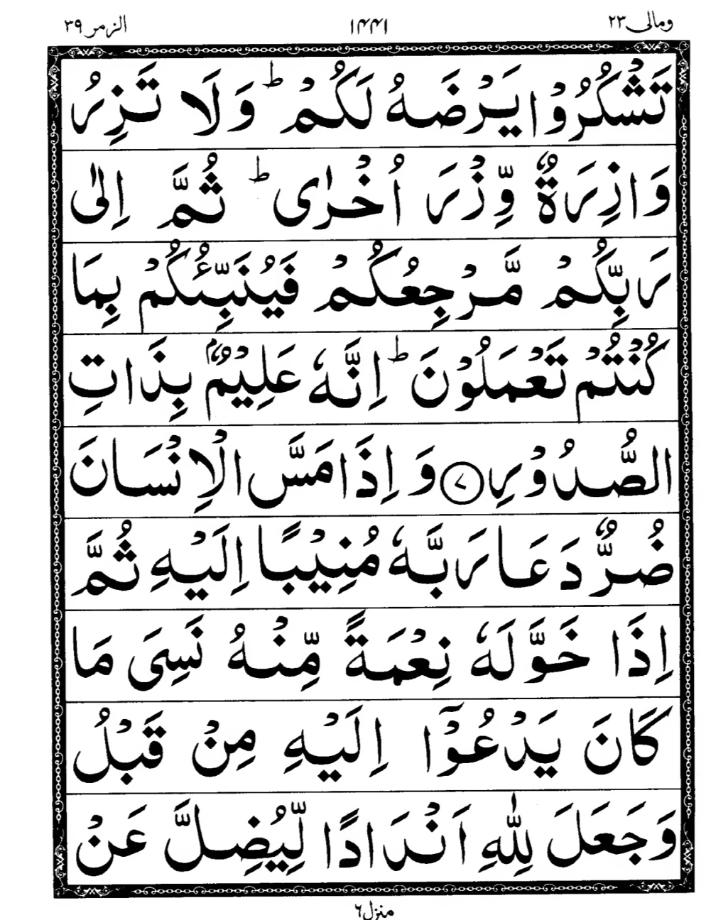 ومالی ۲۳ ۱۴۴۱ الزمر ۳۹
تَشْكُرُوْا يَرْضَهُ لَكُمْ ؕ وَلَا تَزِرُ
وَازِرَةٌ وِّزْرَ اُخْرٰى ؕ ثُمَّ اِلٰى
رَبِّكُمْ مَّرْجِعُكُمْ فَيُنَبِّئُكُمْ بِمَا
كُنْتُمْ تَعْمَلُوْنَ ؕ اِنَّهٗ عَلِيْمٌۢ بِذَاتِ
الصُّدُوْرِ ۷ وَ اِذَا مَسَّ الْاِنْسَانَ
ضُرٌّ دَعَا رَبَّهٗ مُنِيْبًا اِلَيْهِ ثُمَّ
اِذَا خَوَّلَهٗ نِعْمَةً مِّنْهُ نَسِىَ مَا
كَانَ يَدْعُوْۤا اِلَيْهِ مِنْ قَبْلُ
وَجَعَلَ لِلّٰهِ اَنْدَادًا لِّيُضِلَّ عَنْ
منزل ۶